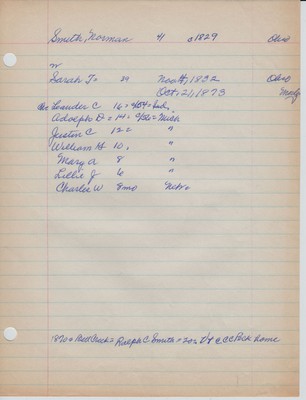 Smith, Norman 41 a1829 Ohio
w
Sarah J= 39 Nov 4, 1832 Ohio
Oct. 21, 1873
Leander C 16= 1854= Ind,
Adolph D= 14= 1856= Mich
Justin C 12= "
William H 10, "
Mary A 8 "
Lillie J 6 "
Charlie W 8mo Nebr.
1870= Bell Creek= Ralph C. Smith= 20= NY @ CC Peck home